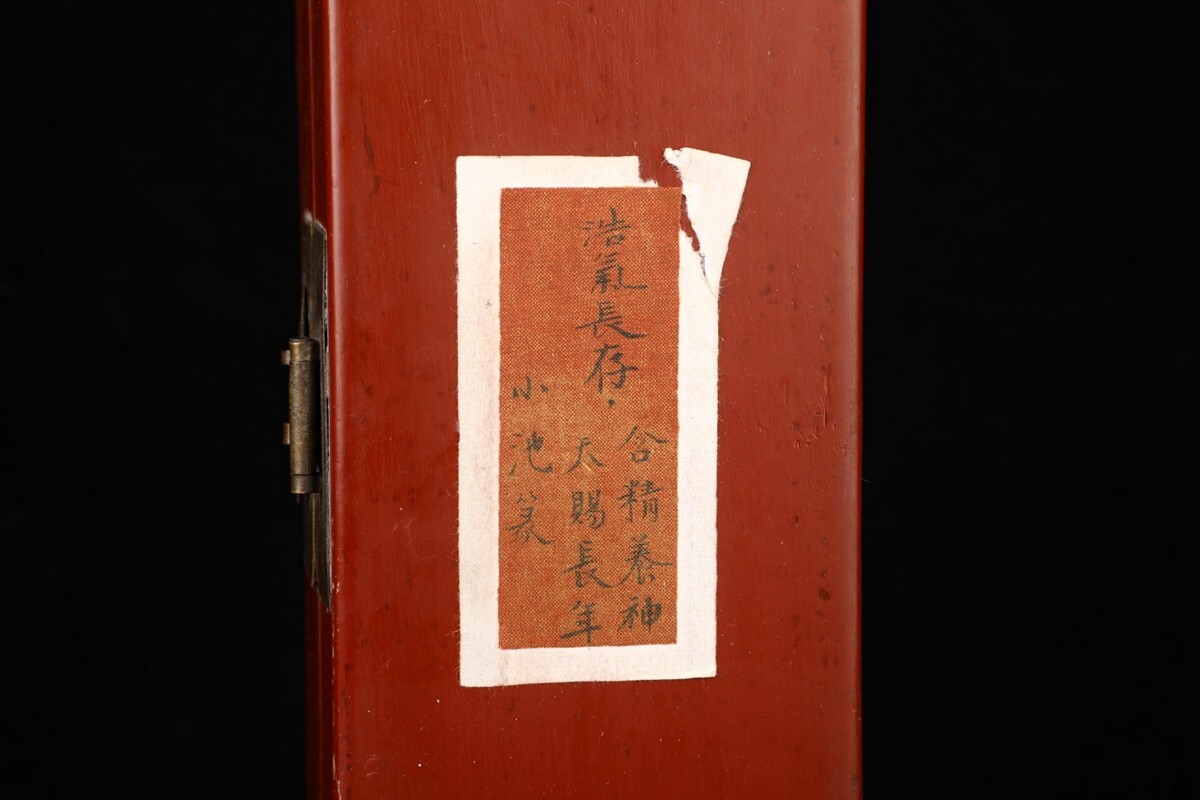 浩氣長存．
含精養神
天賜長年
小池篆